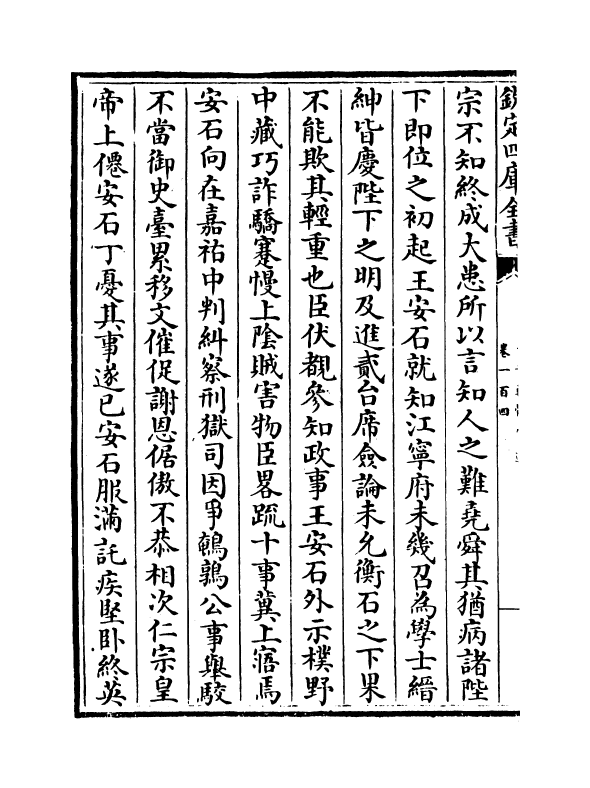 欽定四庫全書
卷一百四
宗不知終成大患所以言知人之難堯舜其猶病諸陛
下即位之初起王安石就知江寧府未幾召為學士縉
紳皆慶陛下之明及進貳台席僉論未允衡石之下果
不能欺其輕重也臣伏覩參知政事王安石外示樸野
中藏巧詐驕蹇慢上陰賊害物臣畧疏十事冀上寤焉
安石向在嘉祐中判糾察刑獄司因爭鵪鶉公事舉駮
不當御史臺累移文催促謝恩倨傲不恭相次仁宗皇
帝上僊安石丁憂其事遂已安石服滿託疾堅卧終英